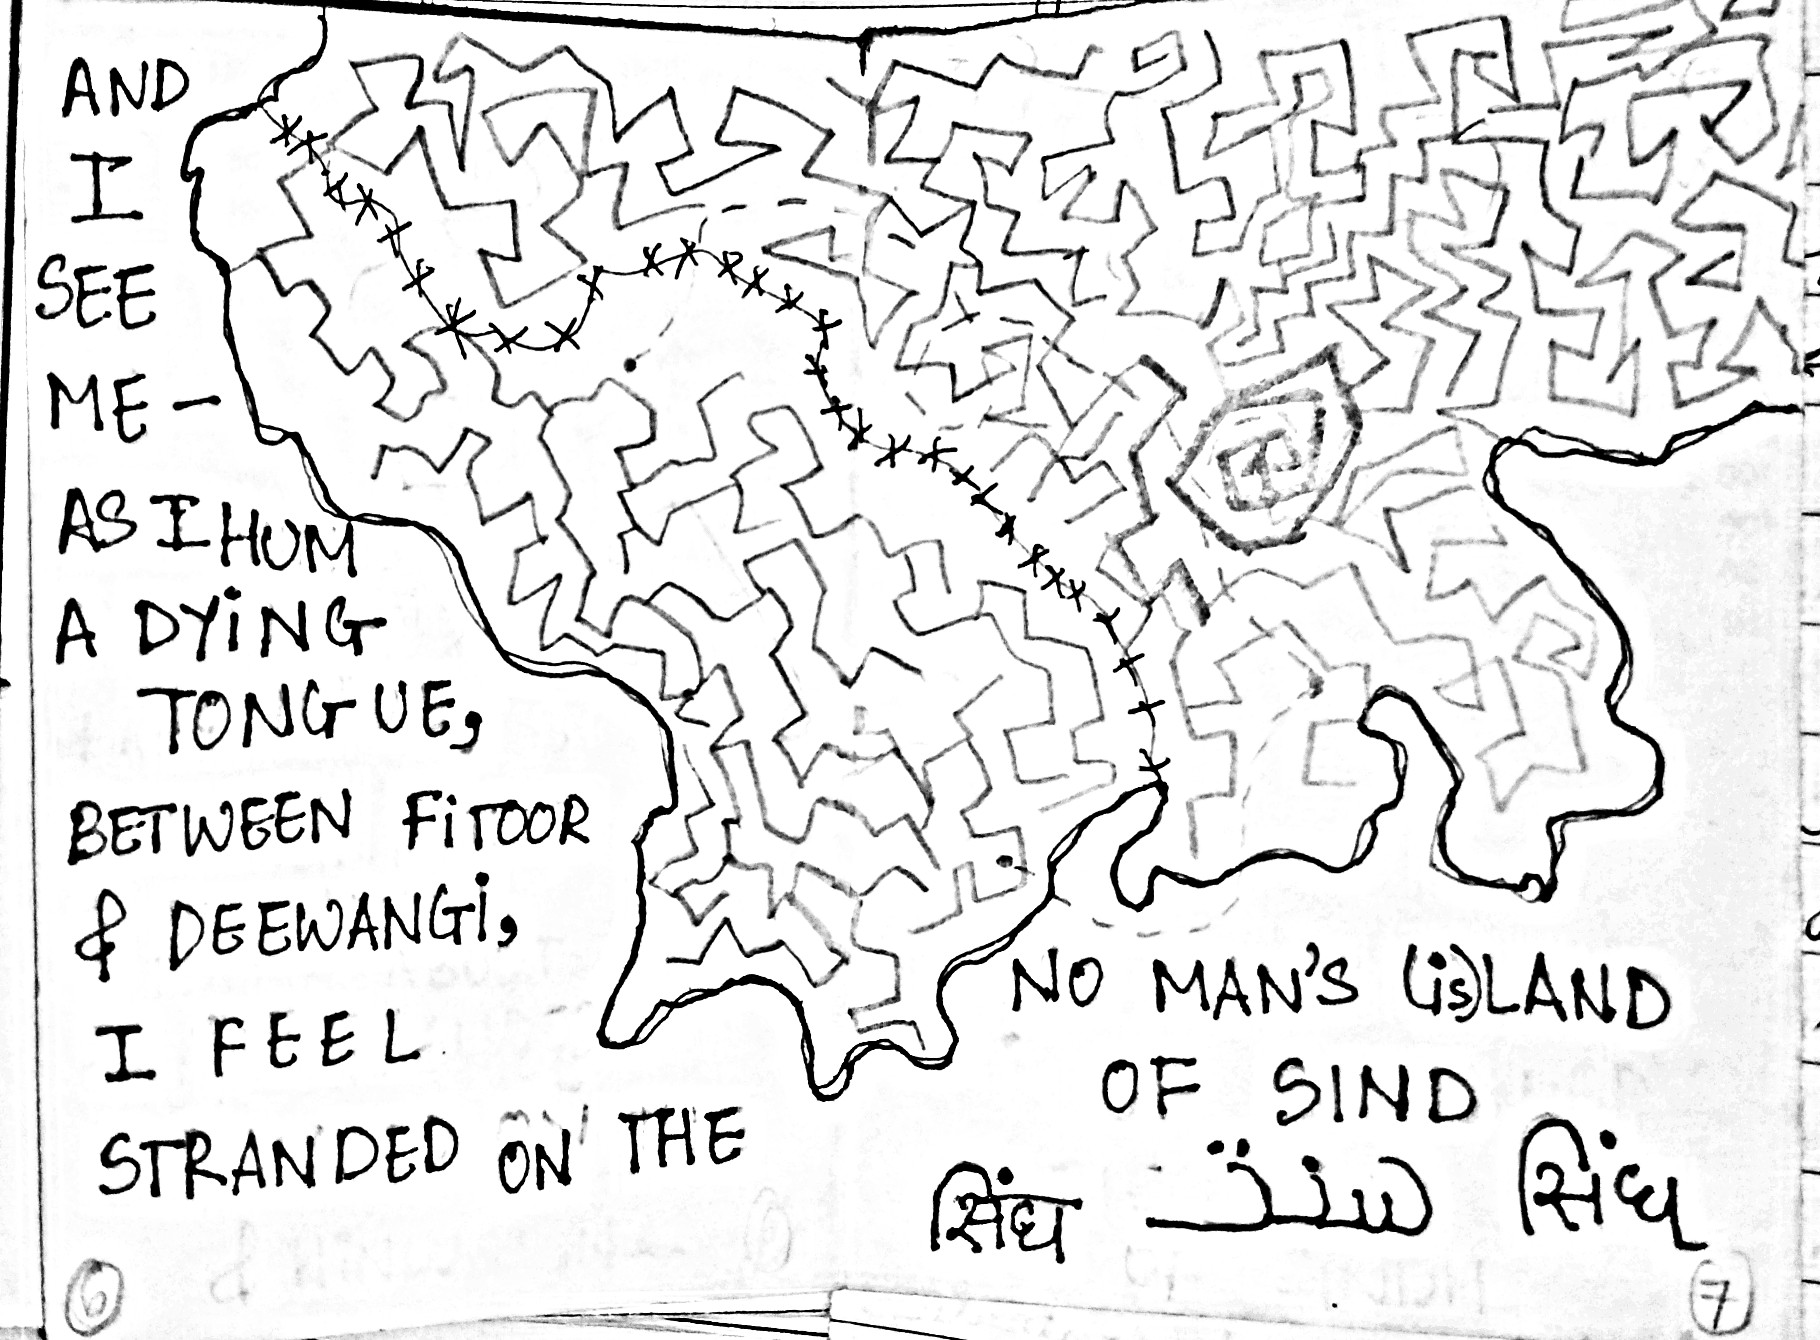 AND
I
SEE
ME –
AS I HUM
A DYiNG
TONGUE,
BETWEEN FiTOOR
& DEEWANGi,
I FEEL
STRANDED ON THE
NO MAN'S (is)LAND
OF SIND
सिंध سنڌ સિંધ
6
7